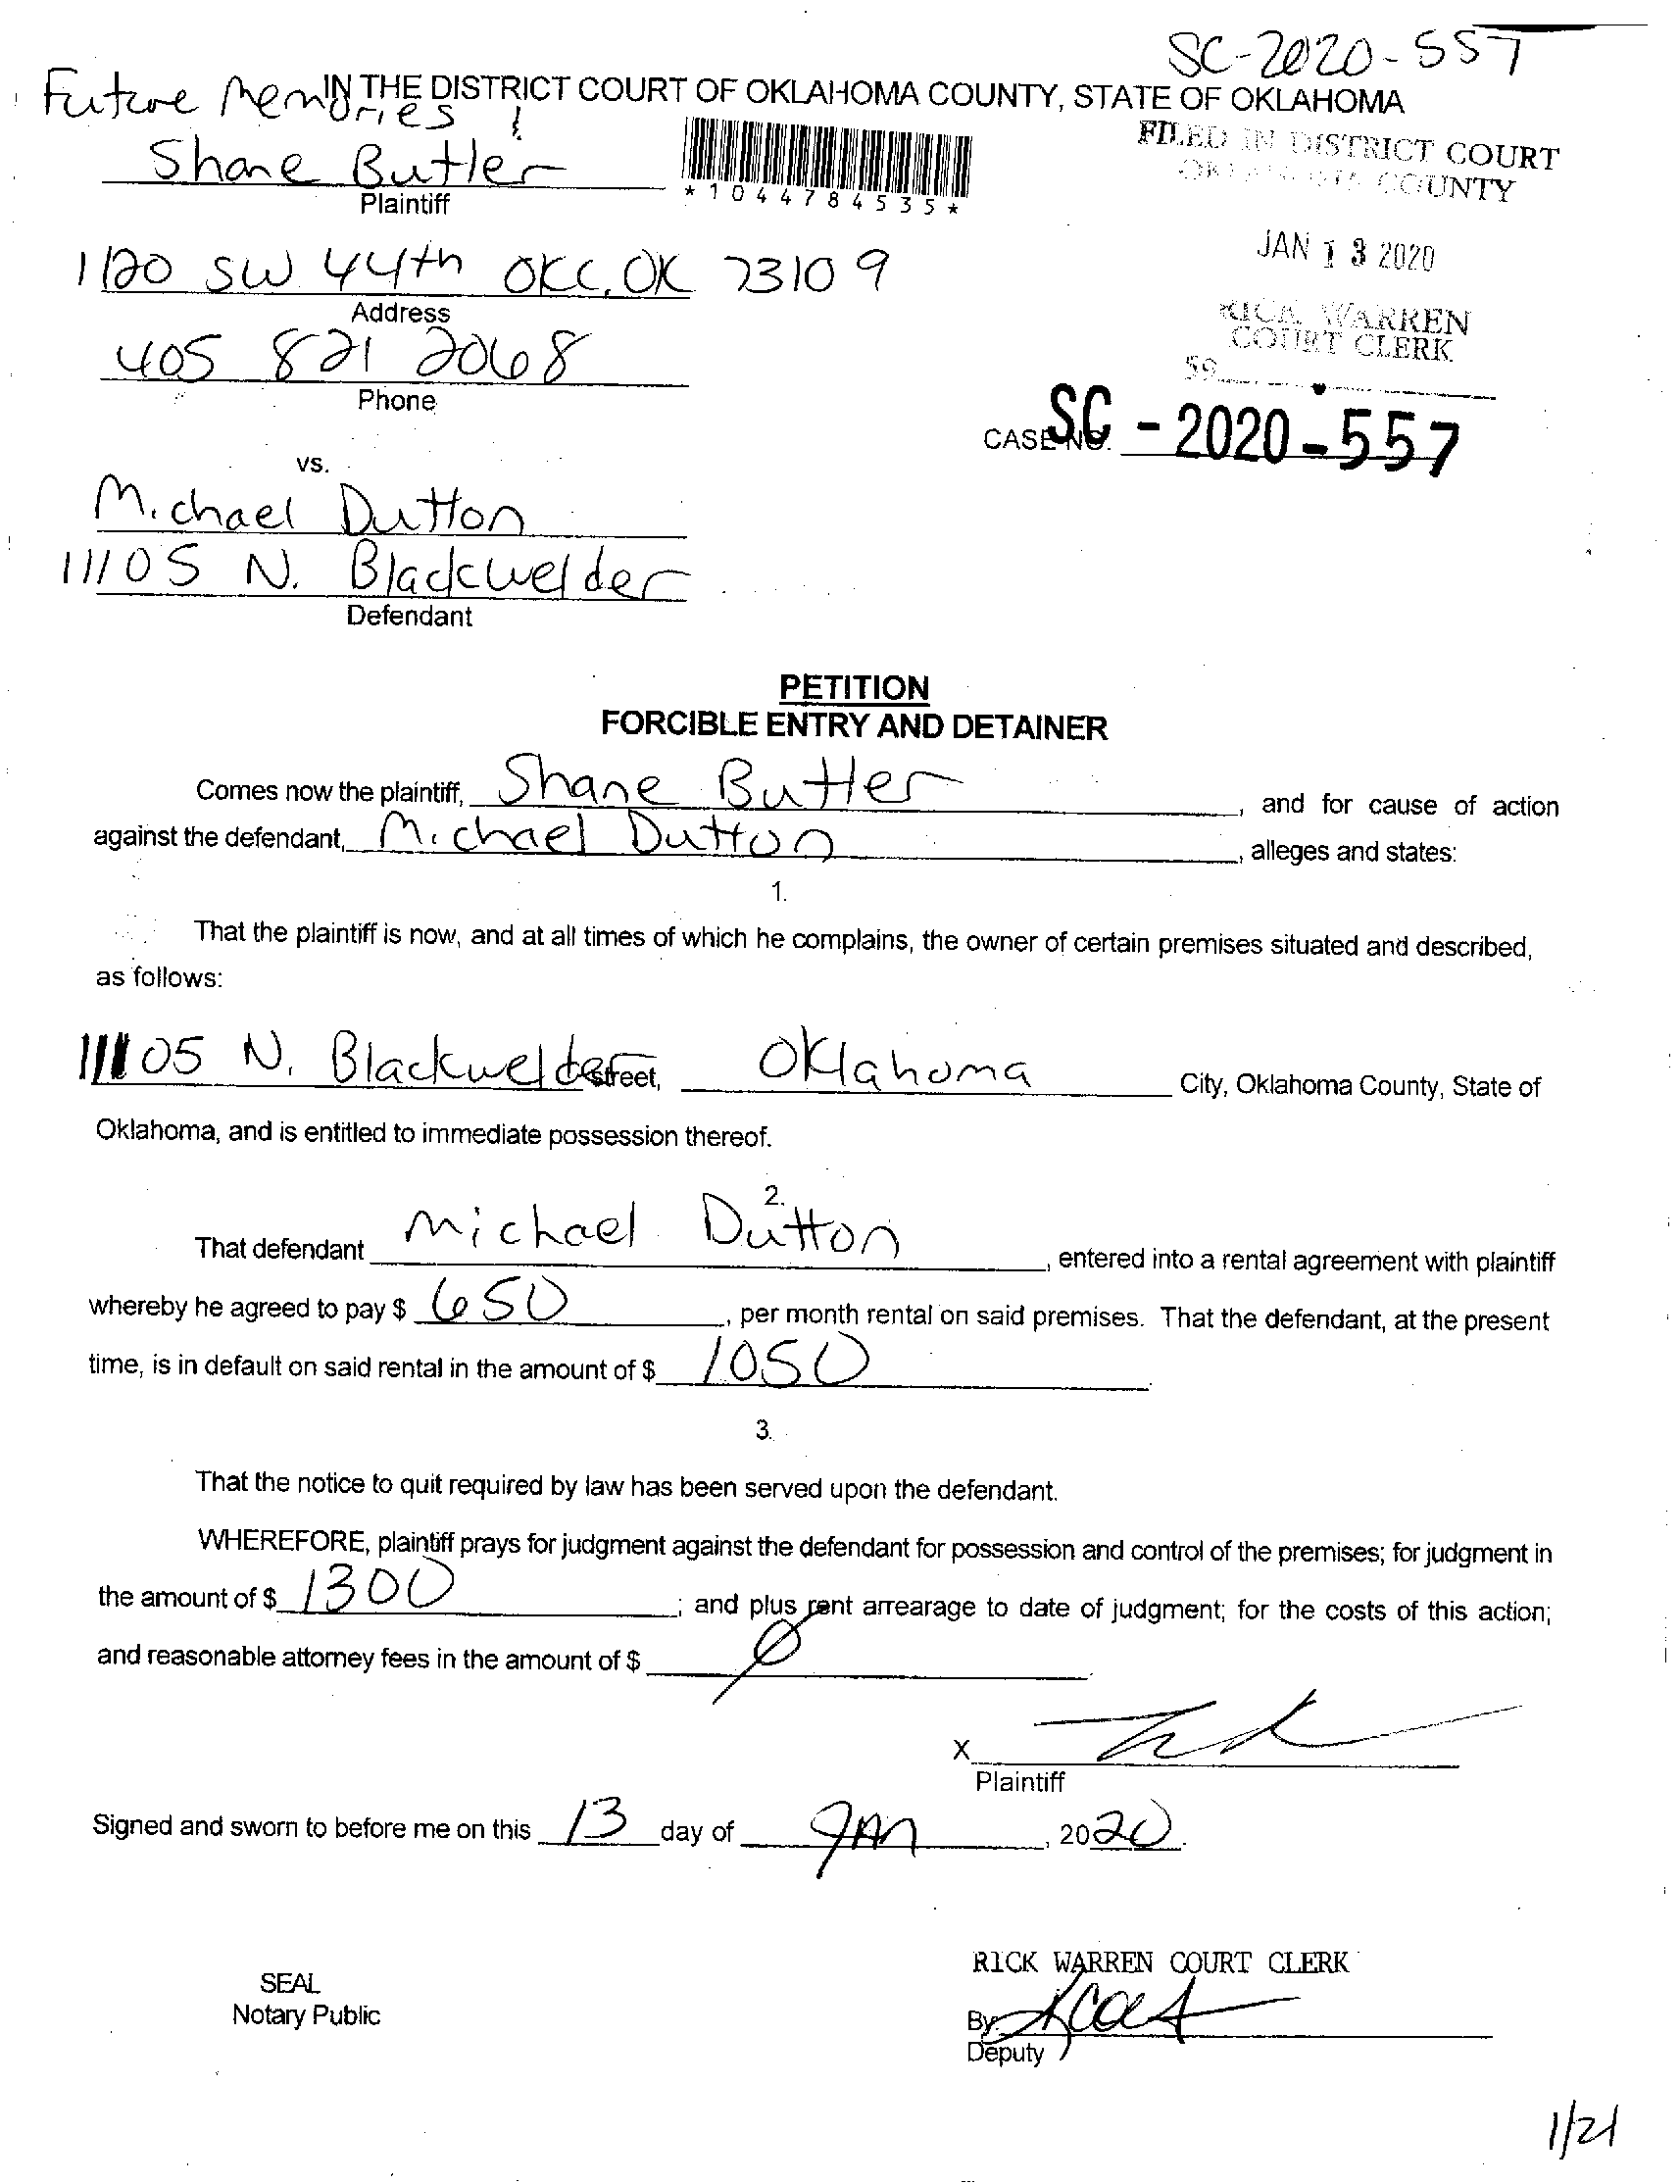 SC-2020-557
IN THE DISTRICT COURT OF OKLAHOMA COUNTY, STATE OF OKLAHOMA
Future Memories &
Shane Butler
Plaintiff
*1044784535*
FILED IN DISTRICT COURT
OKLAHOMA COUNTY
JAN 13 2020
RICK WARREN
COURT CLERK
59
1120 SW 44th OKC, OK 73109
Address
405 821 2068
Phone
CASE NO. SC - 2020 - 557
vs.
Michael Dutton
11105 N. Blackwelder
Defendant
PETITION
FORCIBLE ENTRY AND DETAINER
Comes now the plaintiff, Shane Butler, and for cause of action
against the defendant, Michael Dutton, alleges and states:
1.
That the plaintiff is now, and at all times of which he complains, the owner of certain premises situated and described,
as follows:
11105 N. Blackwelder street, Oklahoma City, Oklahoma County, State of
Oklahoma, and is entitled to immediate possession thereof.
2.
That defendant Michael Dutton, entered into a rental agreement with plaintiff
whereby he agreed to pay $ 650, per month rental on said premises. That the defendant, at the present
time, is in default on said rental in the amount of $ 1050.
3.
That the notice to quit required by law has been served upon the defendant.
WHEREFORE, plaintiff prays for judgment against the defendant for possession and control of the premises; for judgment in
the amount of $ 1300; and plus rent arrearage to date of judgment; for the costs of this action;
and reasonable attorney fees in the amount of $ Ø.
X
Plaintiff
Signed and sworn to before me on this 13 day of Jan, 2020.
RICK WARREN COURT CLERK
SEAL
Notary Public
By:
Deputy
1/21